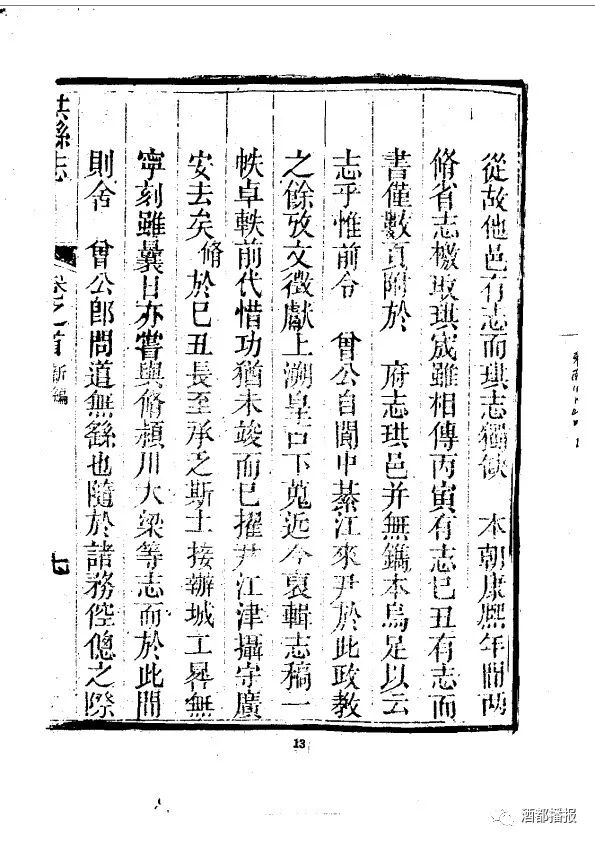 從故他邑有志而珙志獨缺　本朝康熙年間两
脩省志檄取珙宬雖相傳丙寅有志巳丑有志而
書僅數頁附於　府志珙邑并無鐫本烏足以云
志乎惟前令　曾公自閬中綦江來尹於此政教
之餘攷文徵獻上溯皇古下蒐近今裒輯志稿一
帙卓軼前代惜功猶未竣而巳擢尹江津攝守廣
安去矣脩於巳丑長至承乏斯土接辦城工畧無
寧刻雖曩日亦嘗與脩潁川大梁等志而於此間
則舍　曾公郎問道無繇也隨於諸務倥傯之隙
珙縣志
卷之首
新編
七
13
酒都播报